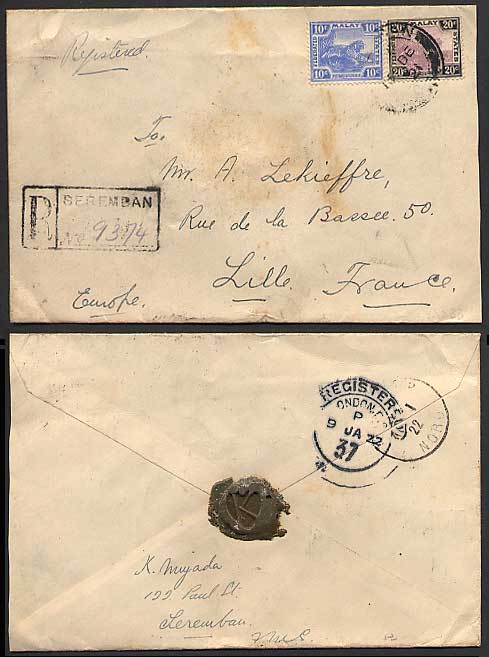 Registered
10c MALAY 10c
10c 10c
20c MALAY STATES 20c
20c 20c
To,
Mr. A. Lekieffre,
Rue de la Bassee. 50.
Lille. France.
Europe.
R SEREMBAN
No 9374
REGISTERED
LONDON
P
9 JA 22
37
1
22
NORD
K. Miyada
122 Paul St.
Seremban.
F.M.S.